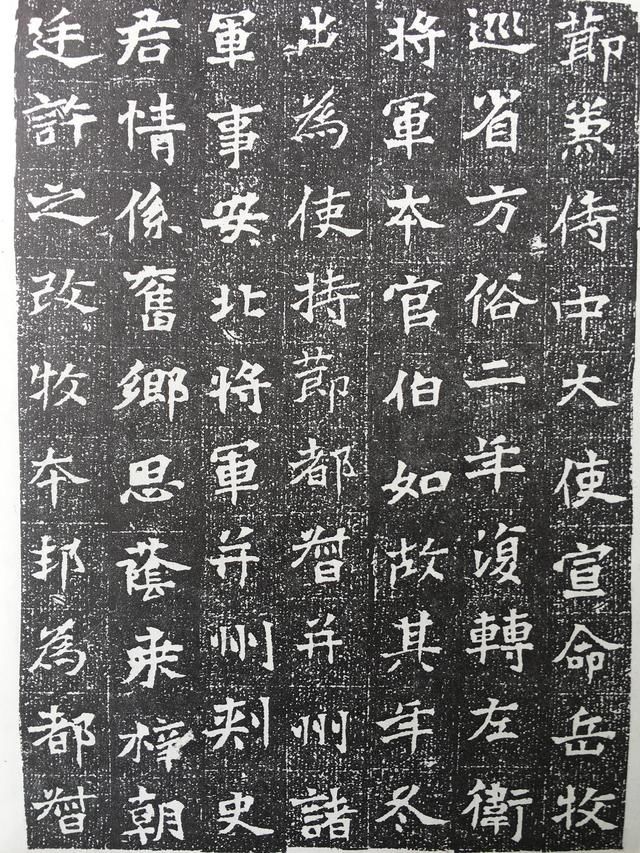 節兼侍中大使宣命岳牧
巡省方俗二年復轉左衛
將軍本官伯如故其年冬
出為使持節都督并州諸
軍事安北將軍并州刺史
君情係舊鄉思蔭桑梓朝
廷許之改牧本邦為都督